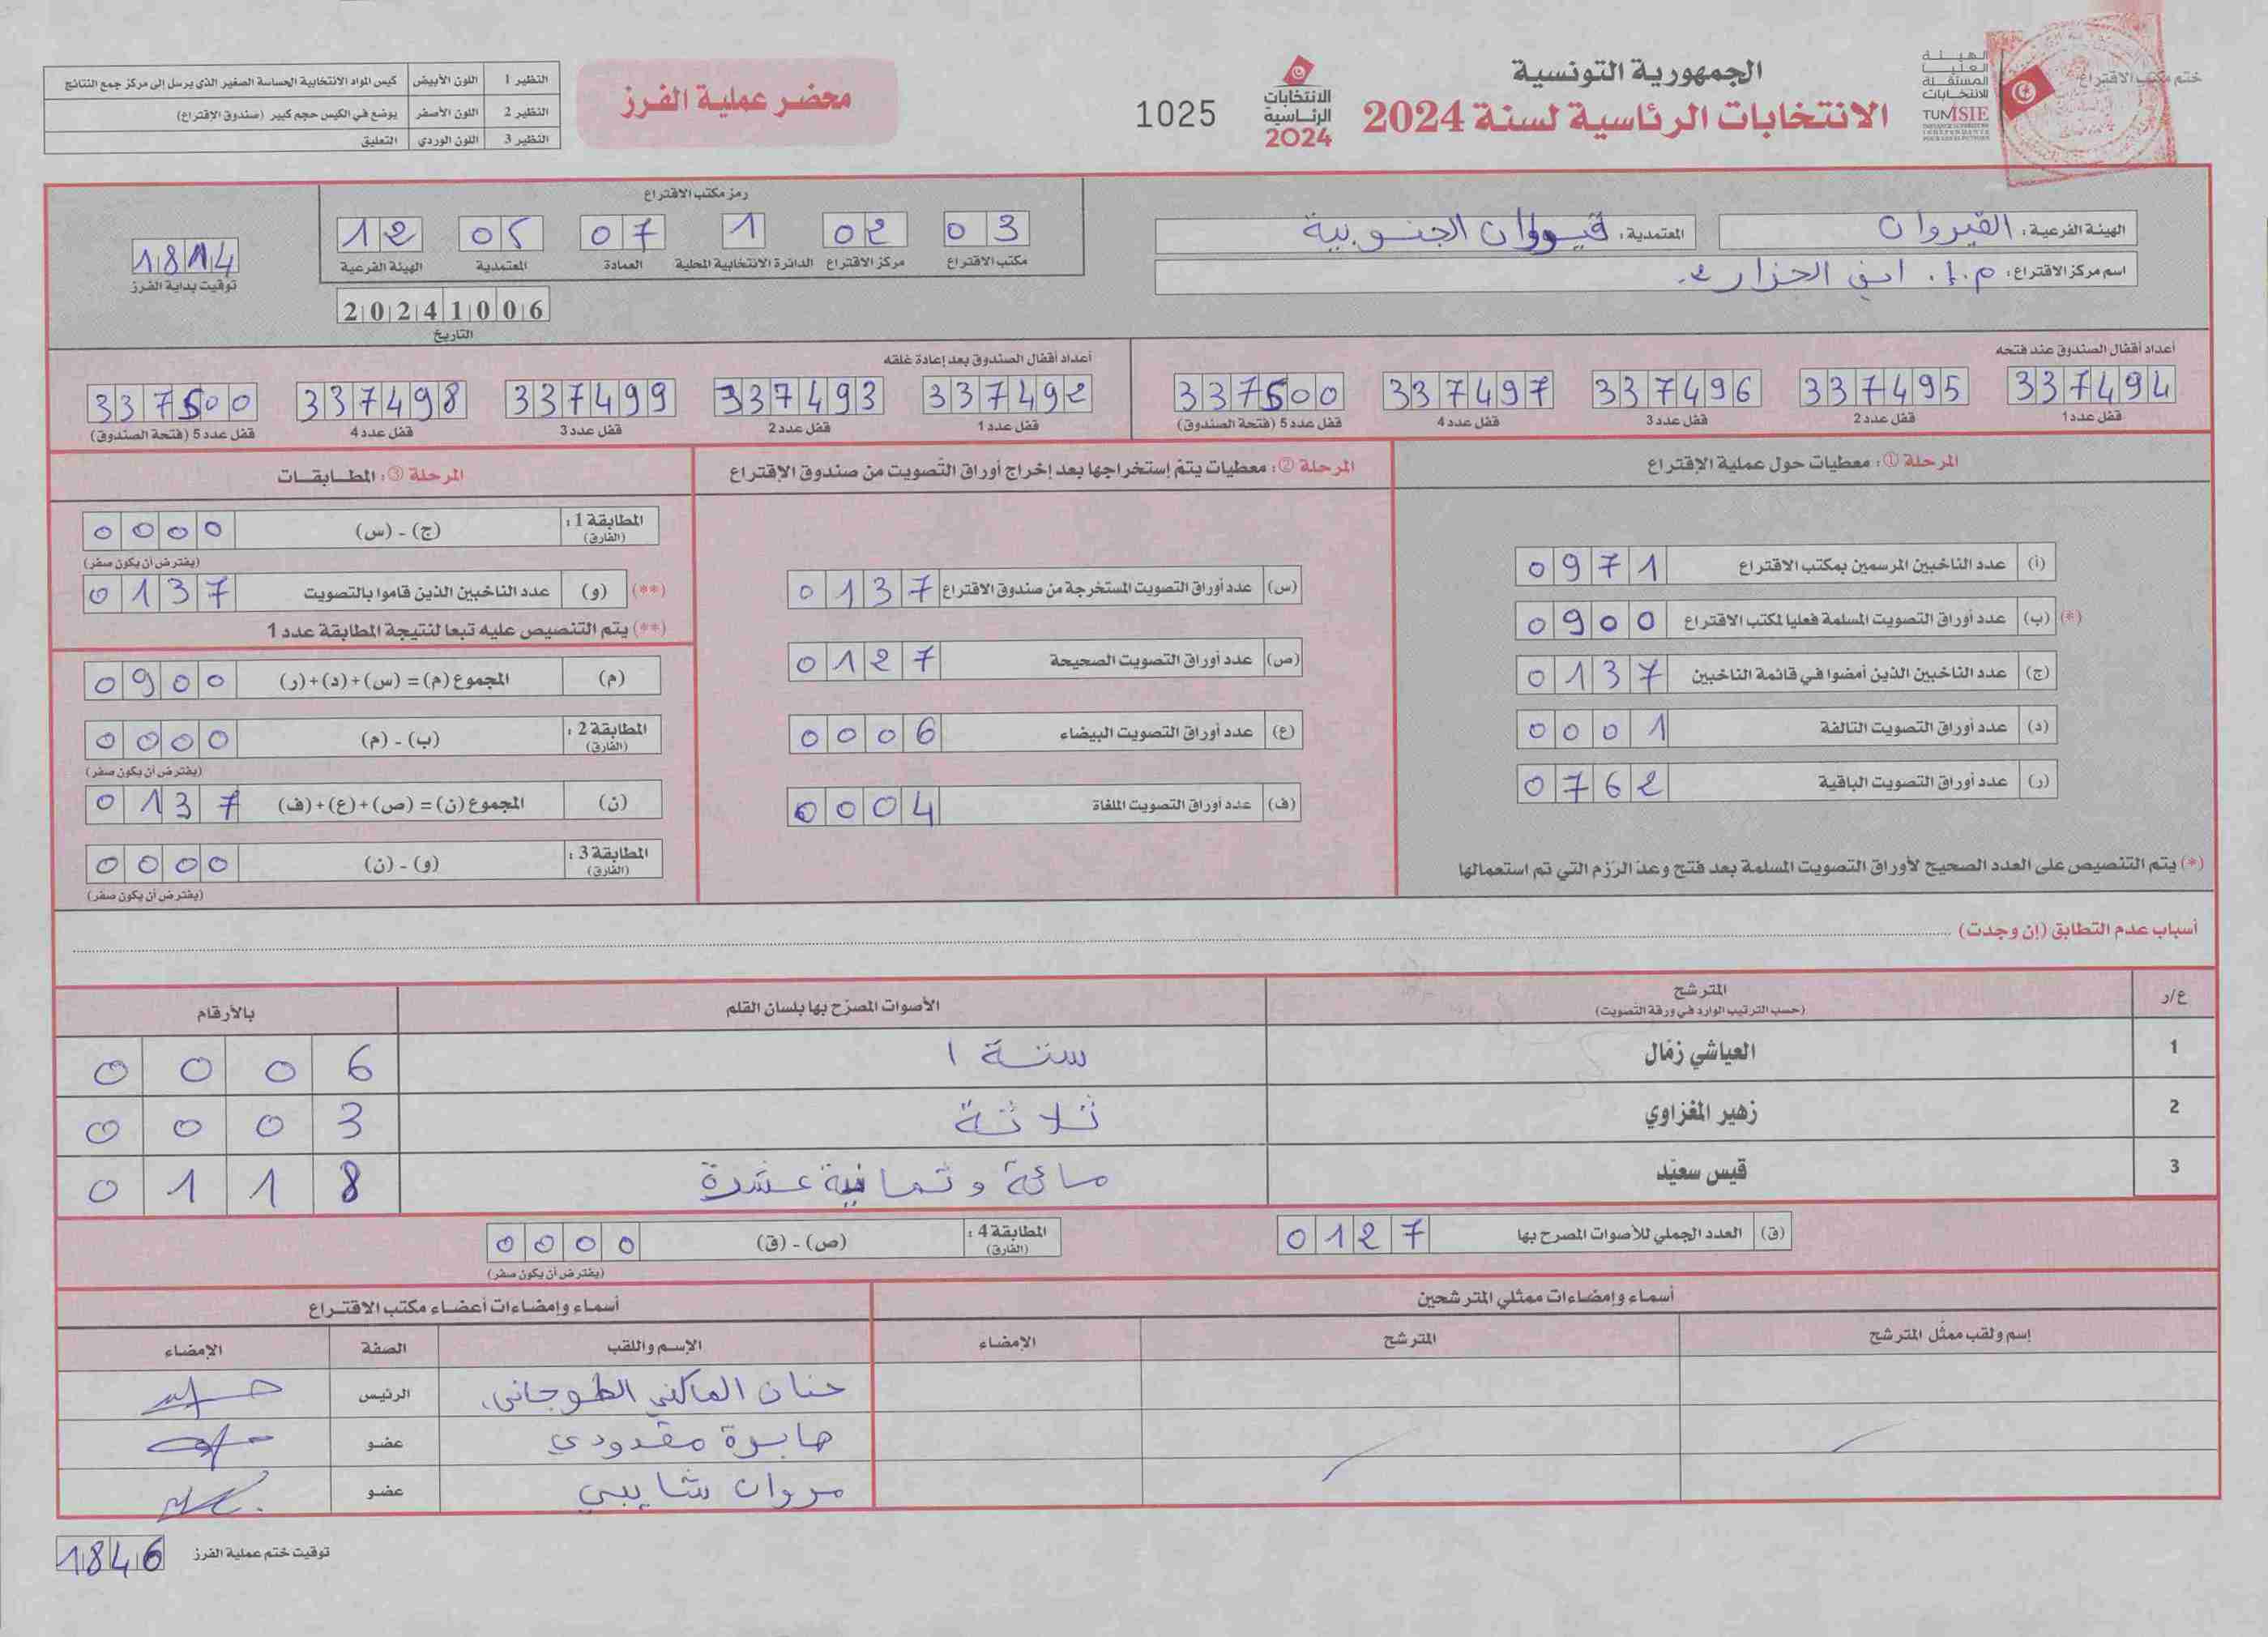 ختم مكتب الاقتراع
الهيئة
العليا
المستقلة
للانتخابات
TUNISIE
الجمهورية التونسية
الانتخابات الرئاسية لسنة 2024
الانتخابات
الرئاسية
2024
1025
محضر عملية الفرز
النظير 1 اللون الأبيض كيس المواد الانتخابية الحساسة الصغير الذي يرسل إلى مركز جمع النتائج
النظير 2 اللون الأصفر يوضع في الكيس حجم كبير (صندوق الإقتراع)
النظير 3 اللون الوردي التعليق
الهيئة الفرعية: القيروان
المعتمدية: قيروان الجنوبية
اسم مركز الاقتراع: م.إ. ابن الجزار
رمز مكتب الاقتراع
03 02 1 07 05 12
مكتب الاقتراع مركز الاقتراع الدائرة الانتخابية المحلية العمادة المعتمدية الهيئة الفرعية
20241006
التاريخ
1814
توقيت بداية الفرز
أعداد أقفال الصندوق عند فتحه
337494 337495 337496 337497 337500
قفل عدد 1 قفل عدد 2 قفل عدد 3 قفل عدد 4 قفل عدد 5 (فتحة الصندوق)
أعداد أقفال الصندوق بعد إعادة غلقه
337492 337493 337499 337498 337500
قفل عدد 1 قفل عدد 2 قفل عدد 3 قفل عدد 4 قفل عدد 5 (فتحة الصندوق)
المرحلة ①: معطيات حول عملية الإقتراع
(أ) عدد الناخبين المرسمين بمكتب الاقتراع 0971
(*) (ب) عدد أوراق التصويت المسلمة فعليا لمكتب الاقتراع 0900
(ج) عدد الناخبين الذين أمضوا في قائمة الناخبين 0137
(د) عدد أوراق التصويت التالفة 0001
(ر) عدد أوراق التصويت الباقية 0762
(*) يتم التنصيص على العدد الصحيح لأوراق التصويت المسلمة بعد فتح وعد الرزم التي تم استعمالها
المرحلة ②: معطيات يتم إستخراجها بعد إخراج أوراق التصويت من صندوق الإقتراع
(س) عدد أوراق التصويت المستخرجة من صندوق الاقتراع 0137
(ص) عدد أوراق التصويت الصحيحة 0127
(ع) عدد أوراق التصويت البيضاء 0006
(ف) عدد أوراق التصويت الملغاة 0004
المرحلة ③: المطابقات
المطابقة 1 : (الفارق) (ج) - (س) 0000
(يفترض أن يكون صفر)
(**) (و) عدد الناخبين الذين قاموا بالتصويت 0137
(**) يتم التنصيص عليه تبعا لنتيجة المطابقة عدد 1
(م) المجموع (م) = (س)+(د)+(ر) 0900
المطابقة 2 : (الفارق) (ب) - (م) 0000
(يفترض أن يكون صفر)
(ن) المجموع (ن) = (ص)+(ع)+(ف) 0137
المطابقة 3 : (الفارق) (و) - (ن) 0000
(يفترض أن يكون صفر)
أسباب عدم التطابق (إن وجدت)
ع/ر المترشح الأصوات المصرّح بها بلسان القلم بالأرقام
(حسب الترتيب الوارد في ورقة التصويت)
1 العياشي زمّال ستة 0006
2 زهير المغزاوي ثلاثة 0003
3 قيس سعيّد مائة وثمانية عشرة 0118
(ق) العدد الجملي للأصوات المصرح بها 0127
المطابقة 4 : (الفارق) (ص) - (ق) 0000
(يفترض أن يكون صفر)
أسماء وإمضاءات ممثلي المترشحين
إسم ولقب ممثّل المترشح المترشح الإمضاء
أسماء وإمضاءات أعضاء مكتب الاقتراع
الإسم واللقب الصفة الإمضاء
حنان الماكني الطوجاني الرئيس
صابرة مقدودي عضو
مروان شايبي عضو
توقيت ختم عملية الفرز 1846